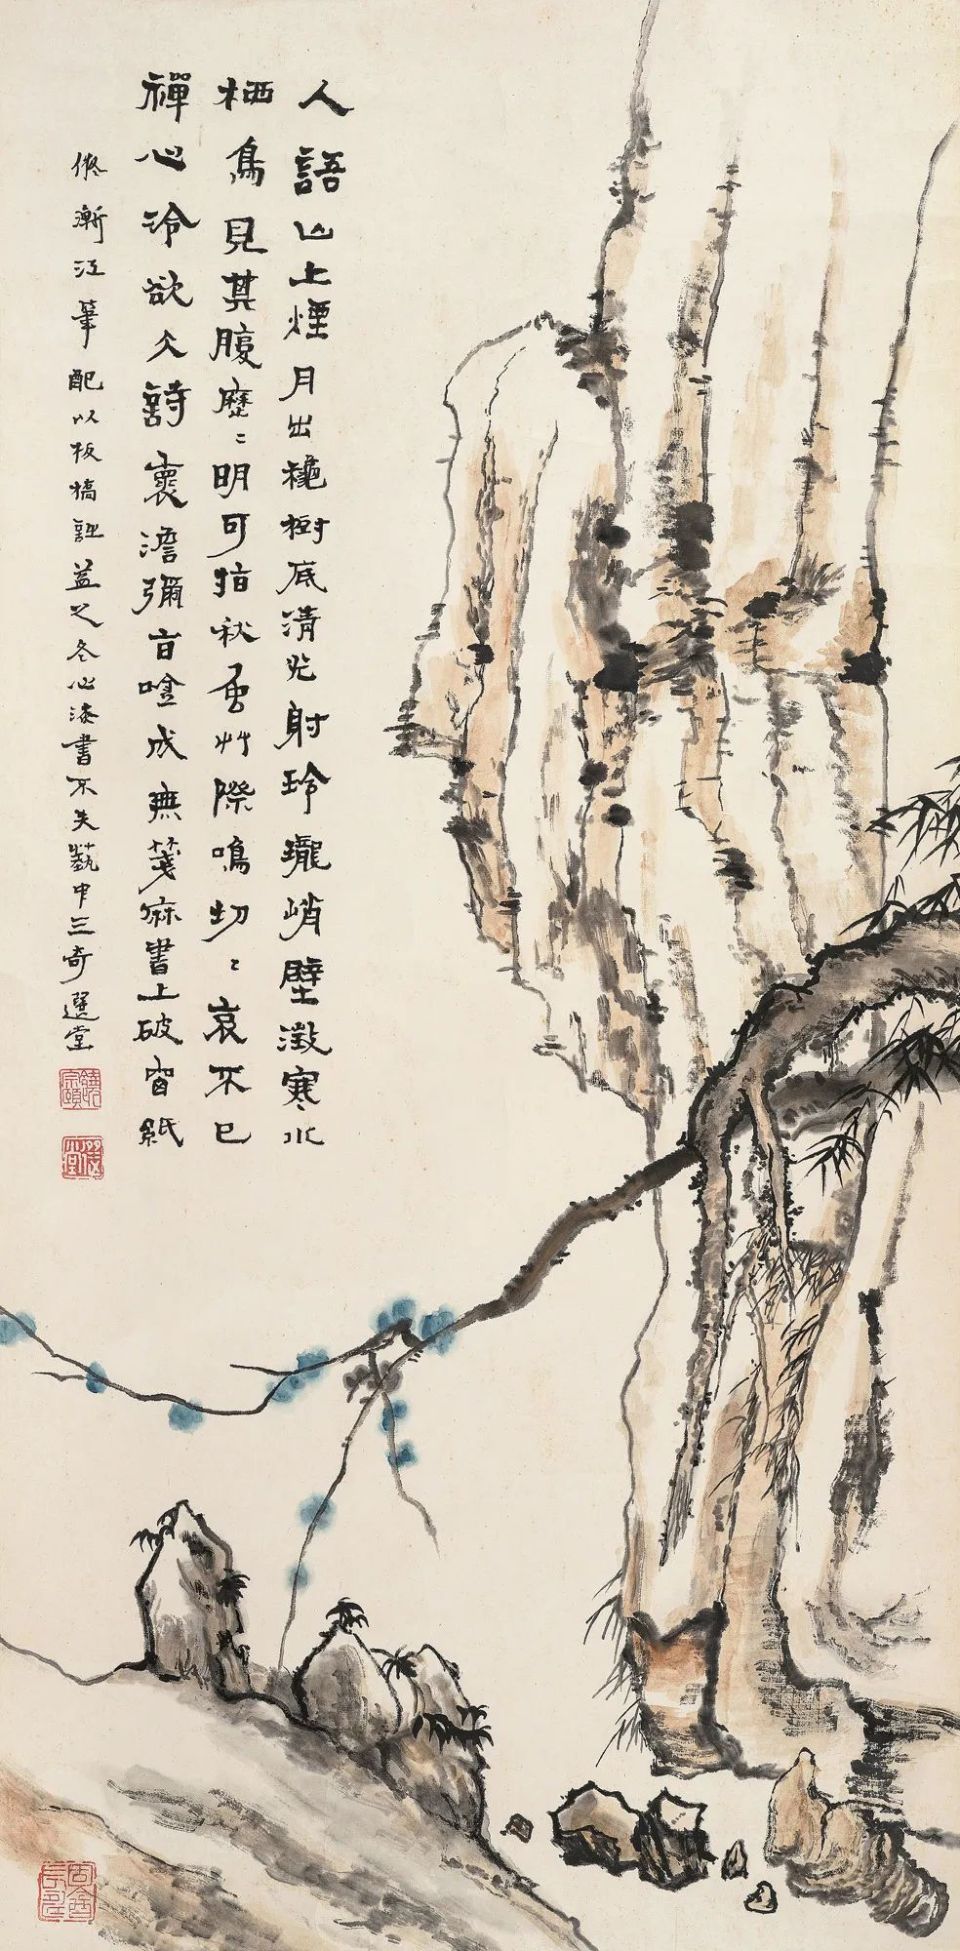 人語山上煙月出穐樹底清光射玲瓏峭壁澂寒水
栖鳥見其腹歷〻明可指秋虫艸際鳴切〻哀不已
禪心冷欲仌詩褱澹彌旨唫成無箋麻書上破窗紙
倣漸江筆配以板橋詩益之冬心漆書不失藝中三奇選堂
饒宗頤
選堂